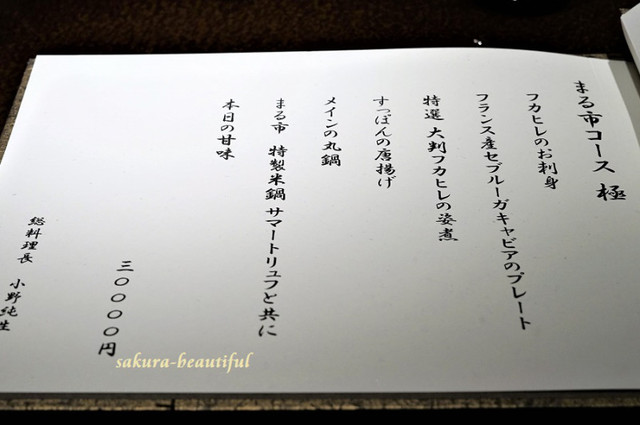 まる市コース 極
フカヒレのお刺身
フランス産セブルーガキャビアのプレート
特選 大判フカヒレの姿煮
すっぽんの唐揚げ
メインの丸鍋
まる市 特製米鍋 サマートリュフと共に
本日の甘味
三〇〇〇〇円
総料理長 小野純生
sakura-beautiful